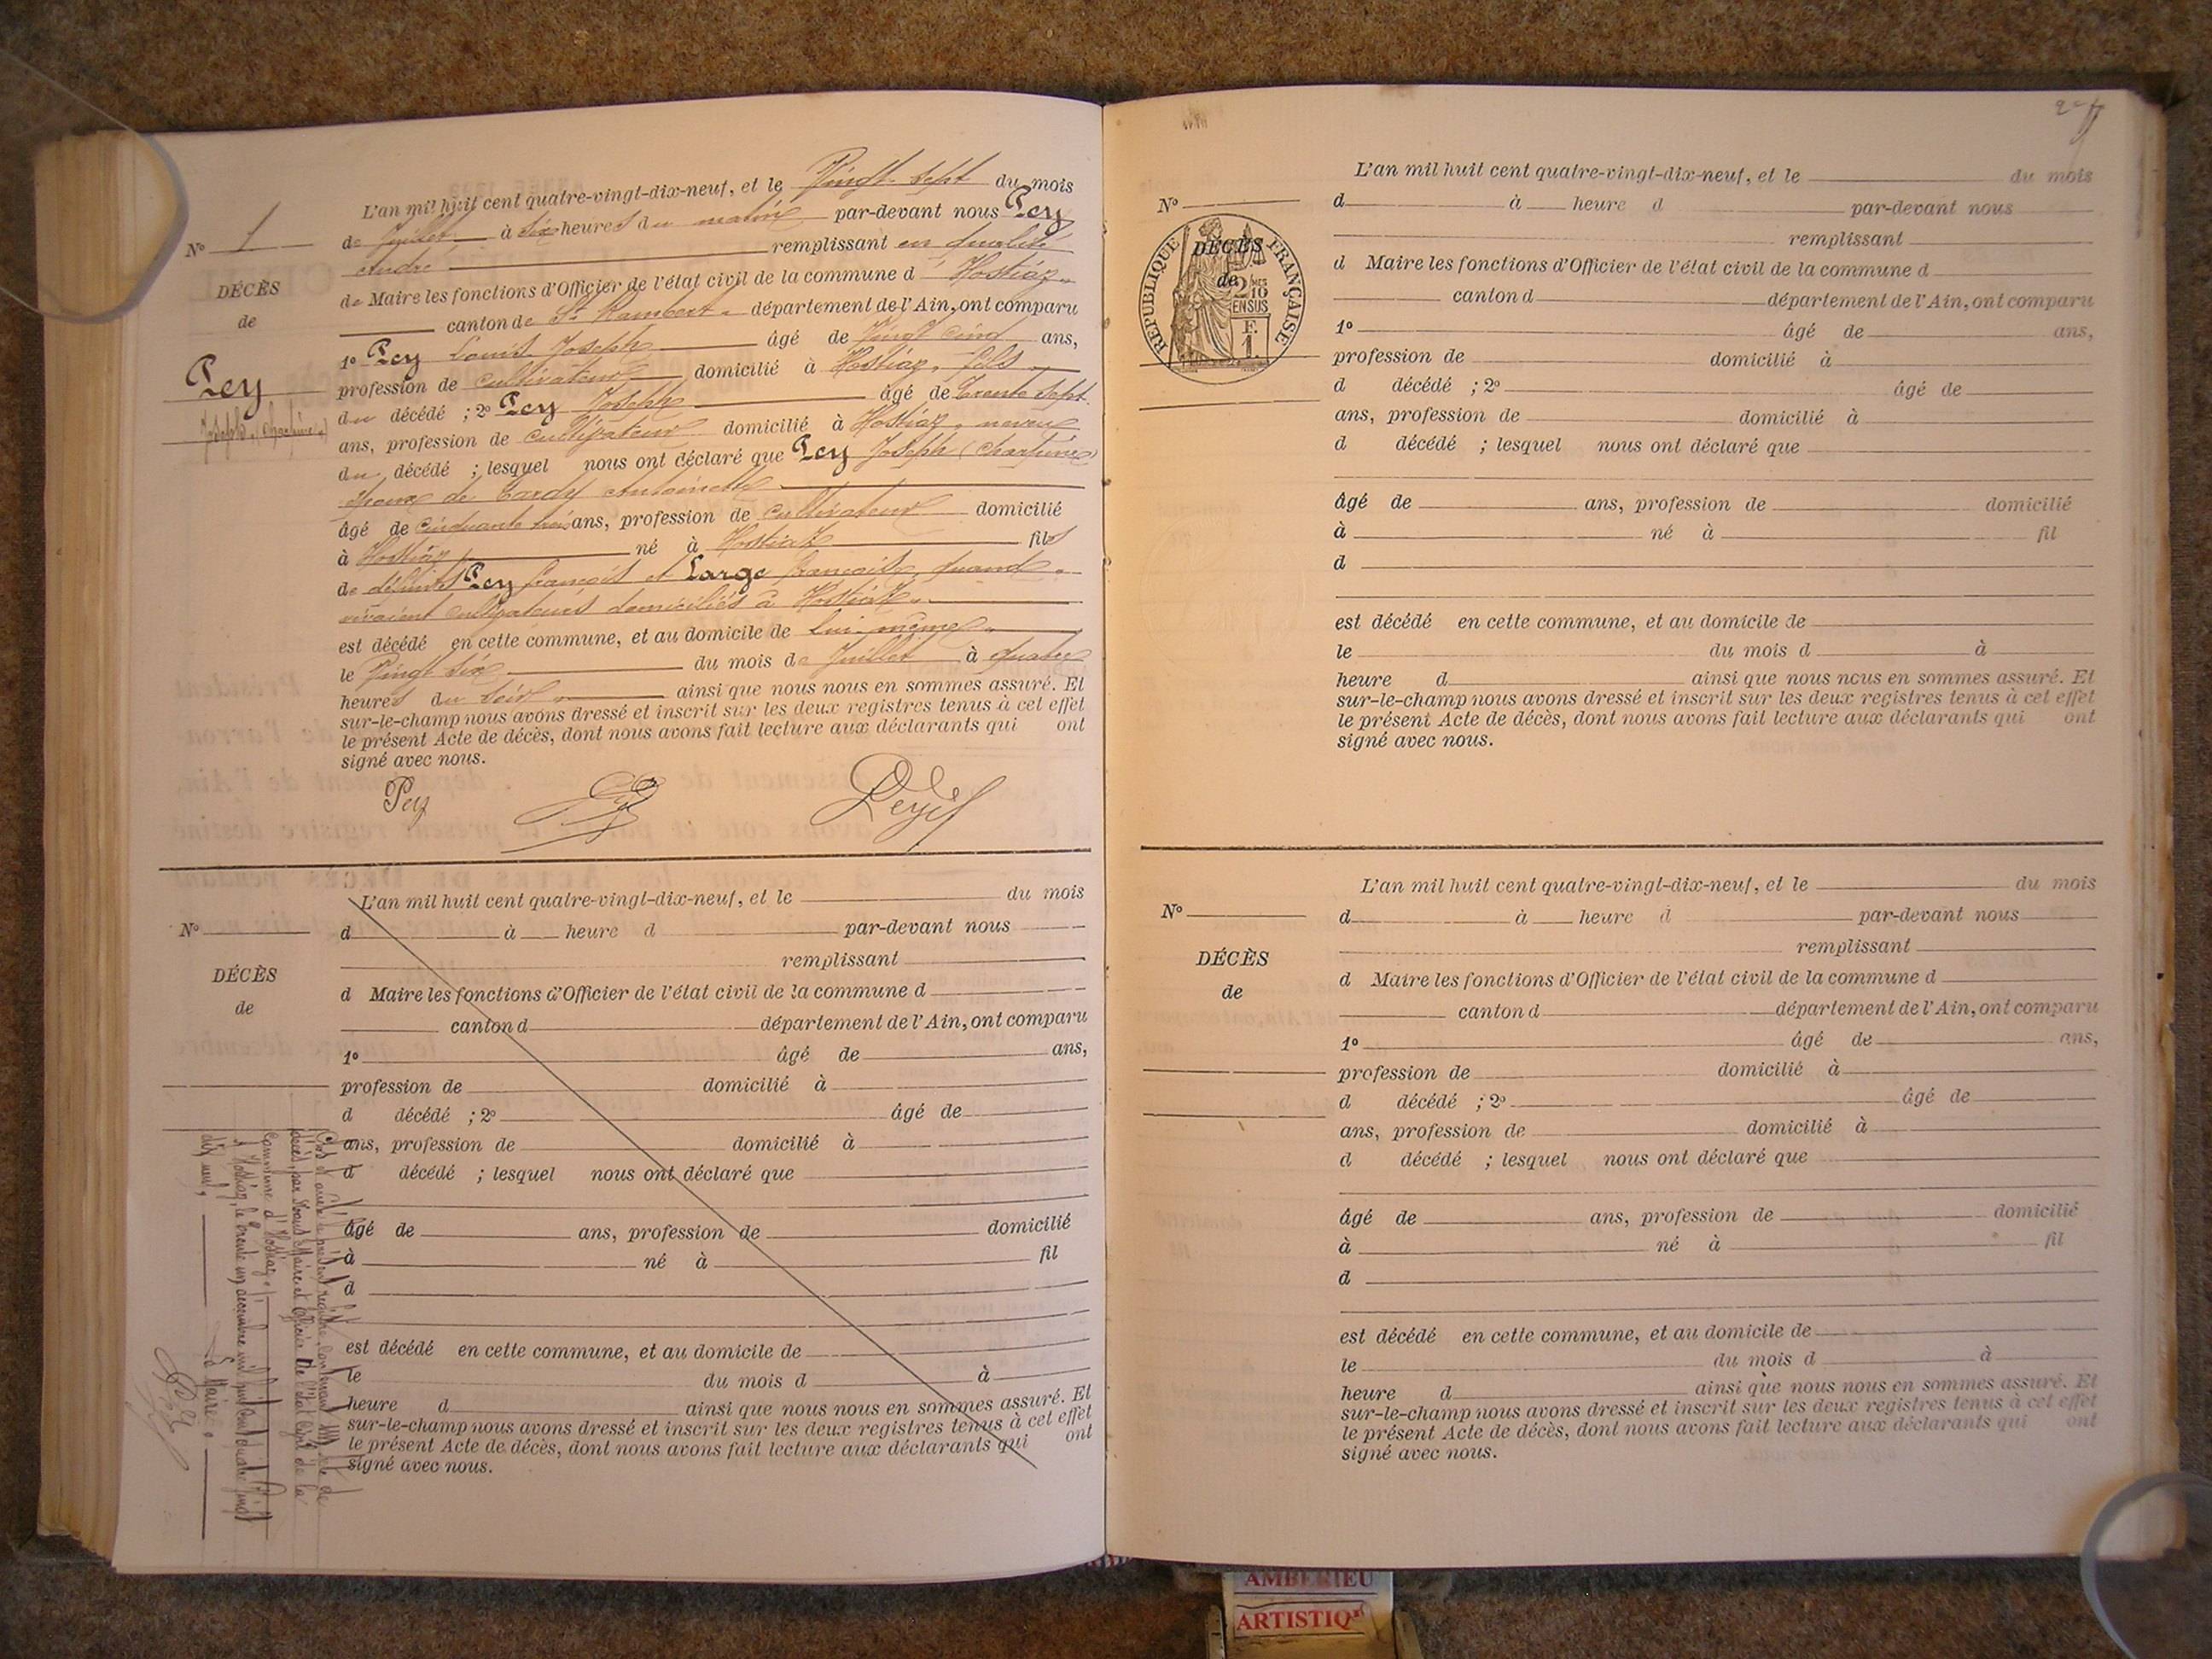 L'an mil huit cent quatre-vingt-dix-neuf, et le Vingt-Sept du mois
N° 1
de Juillet à Six heures du matin par-devant nous Pey
André remplissant en qualité
de Maire les fonctions d'Officier de l'état civil de la commune d'Hostiaz
canton de St Rambert département de l'Ain, ont comparu
DÉCÈS
de
Pey
Joseph, (Charfiné)
1° Pey Louis Joseph âgé de Vingt cinq ans,
profession de cultivateur domicilié à Hostiaz, fils
du décédé ; 2° Pey Joseph âgé de Trente Sept
ans, profession de cultivateur domicilié à Hostiaz, neveu
du décédé ; lesquel nous ont déclaré que Pey Joseph
époux de Tardy Antoinette
âgé de cinquante trois ans, profession de cultivateur domicilié
à Hostiaz né à Hostiaz fils
de défunts Pey françois et Large françoise, quand
vivaient cultivateurs domiciliés à Hostiaz
est décédé en cette commune, et au domicile de lui-même
le Vingt Six du mois de Juillet à quatre
heures du Soir ainsi que nous nous en sommes assuré. Et
sur-le-champ nous avons dressé et inscrit sur les deux registres tenus à cet effet
le présent Acte de décès, dont nous avons fait lecture aux déclarants qui ont
signé avec nous.
Pey
L'an mil huit cent quatre-vingt-dix-neuf, et le du mois
N°
d à heure d par-devant nous
remplissant
DÉCÈS
de
d Maire les fonctions d'Officier de l'état civil de la commune d
canton d département de l'Ain, ont comparu
1° âgé de ans,
profession de domicilié à
d décédé ; 2° âgé de
ans, profession de domicilié à
d décédé ; lesquel nous ont déclaré que
âgé de ans, profession de domicilié
à né à fil
d
est décédé en cette commune, et au domicile de
le du mois d à
heure d ainsi que nous nous en sommes assuré. Et
sur-le-champ nous avons dressé et inscrit sur les deux registres tenus à cet effet
le présent Acte de décès, dont nous avons fait lecture aux déclarants qui ont
signé avec nous.
Clos et arrêté le présent registre contenant acte de
décès, par Nous Maire et Officier de l'état Civil de la
commune d'Hostiaz
A Hostiaz, le trente un décembre mil huit cent quatre vingt
dix neuf,
Le Maire
2
L'an mil huit cent quatre-vingt-dix-neuf, et le du mois
N°
d à heure d par-devant nous
remplissant
RÉPUBLIQUE FRANÇAISE
DÉCÈS
de
2 MES
10
EN SUS
F.
1.
d Maire les fonctions d'Officier de l'état civil de la commune d
canton d département de l'Ain, ont comparu
1° âgé de ans,
profession de domicilié à
d décédé ; 2° âgé de
ans, profession de domicilié à
d décédé ; lesquel nous ont déclaré que
âgé de ans, profession de domicilié
à né à fil
d
est décédé en cette commune, et au domicile de
le du mois d à
heure d ainsi que nous nous en sommes assuré. Et
sur-le-champ nous avons dressé et inscrit sur les deux registres tenus à cet effet
le présent Acte de décès, dont nous avons fait lecture aux déclarants qui ont
signé avec nous.
L'an mil huit cent quatre-vingt-dix-neuf, et le du mois
N°
d à heure d par-devant nous
remplissant
DÉCÈS
de
d Maire les fonctions d'Officier de l'état civil de la commune d
canton d département de l'Ain, ont comparu
1° âgé de ans,
profession de domicilié à
d décédé ; 2° âgé de
ans, profession de domicilié à
d décédé ; lesquel nous ont déclaré que
âgé de ans, profession de domicilié
à né à fil
d
est décédé en cette commune, et au domicile de
le du mois d à
heure d ainsi que nous nous en sommes assuré. Et
sur-le-champ nous avons dressé et inscrit sur les deux registres tenus à cet effet
le présent Acte de décès, dont nous avons fait lecture aux déclarants qui ont
signé avec nous.
AMBERIEU
ARTISTIQ